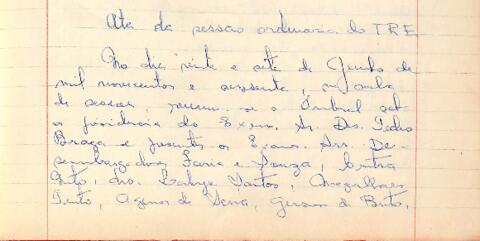 Ata da sessão ordinaria do TRE
No dia vinte e sete de Junho de
mil novecentos e sessenta, na sala
de sessões, reuniu-se o Tribunal sob
a presidencia do Exmo. Sr. Des. Pedro
Braga e presentes os Exmos. Srs. De-
sembargadores Faria e Souza,
Pinto, drs. Santos, Magalhães
Pinto, Agenor de Sena, Gerson de Brito,